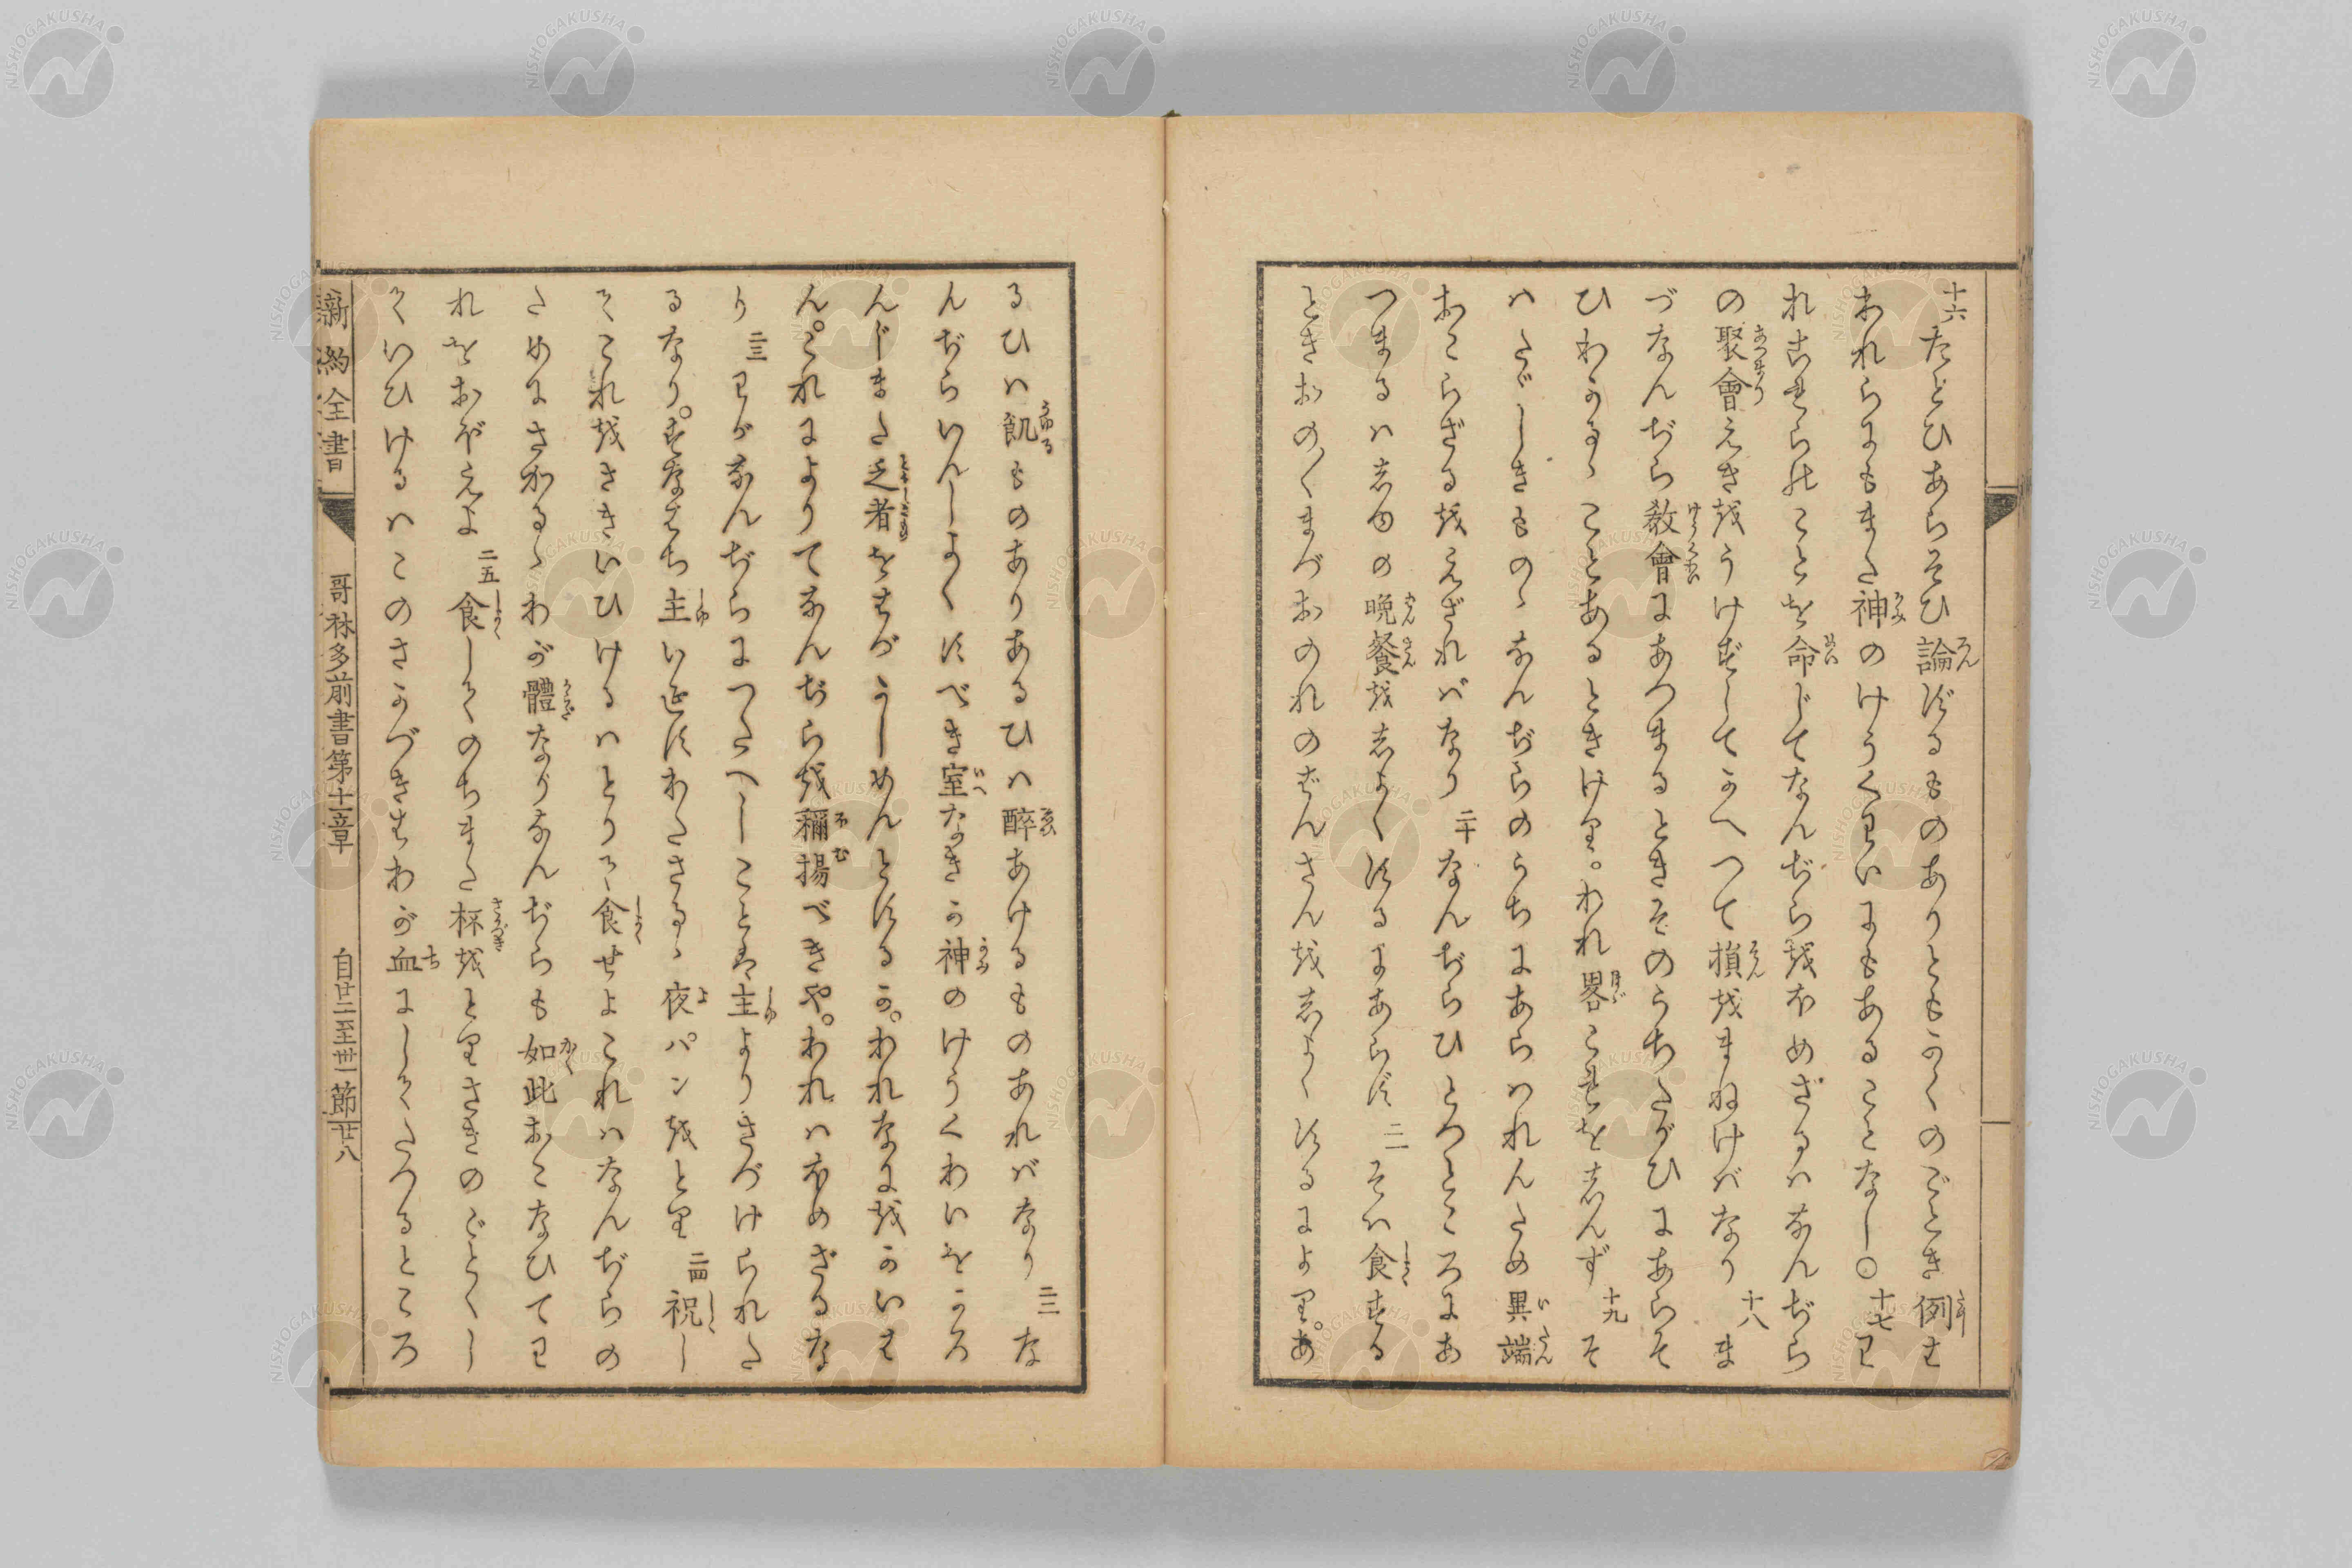 十六たとひあらそひ論ずるものありともかくのごとき例は
われらにもまた神のけうくわいにもあることなし〇十七わ
れこれらのことを命じてなんぢらをほめざるハなんぢら
の聚會えきをうけずしてかへつて損をまねけバなり十八ま
づなんぢら教會にあつまるときそのうちたがひにあらそ
ひわかるゝことあるときけり。われ畧これをしんず十九そ
ハたゞしきものゝなんぢらのうちにあらハれんため異端
おこらざるをえざれバなり二十なんぢらひとつところにあ
つまるハしゆの晩餐をしよくするにあらず二一そハ食する
ときおの〱まづおのれのばんさんをしよくするによれり。あ
るひハ飢ものありあるひハ醉あけるものあれバなり二二な
んぢらいんしよくすべき室なきか神のけうくわいをかろ
んじまた乏者をはづかしめんとするか。われなにをかいは
ん。これによりてなんぢらを稱揚べきや。われハほめざるな
り二三わがなんぢらにつたへしことは主よりさづけられた
るなり。すなはち主いゑすわたさるゝ夜パンをとり二四祝し
てこれをさきいひけるハとりて食せよこれハなんぢらの
ためにさかるゝわが體なりなんぢらも如此おこなひてわ
れをおぼえよ二五食してのちまた杯をとりさきのごとくし
ていひけるハこのさかづきはわが血にしてたつるところ
新約全書
哥林多前書第十一章
自廿二至卅一節
廿八
NISHOGAKUSHA